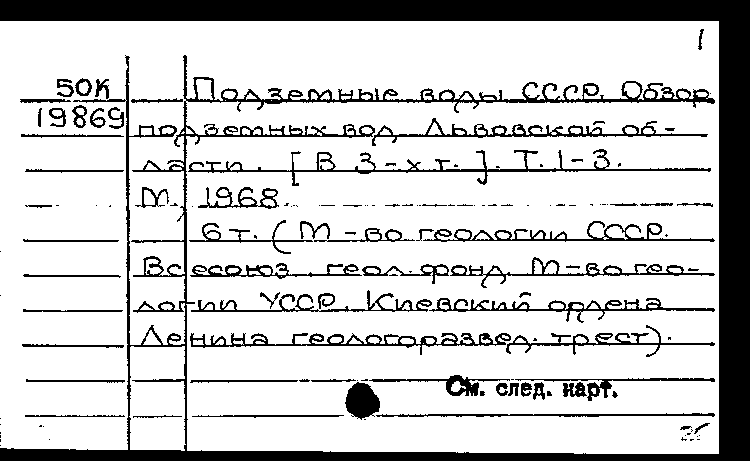 1
50К
19869
Подземные воды СССР. Обзор
подземных вод Львовской об-
ласти. [В 3-х т.]. Т. 1-3.
М., 1968.
6 т. (М-во геологии СССР.
Всесоюз. геол. фонд. М-во гео-
логии УССР. Киевский ордена
Ленина геологоразвед. трест).
См. след. карт.